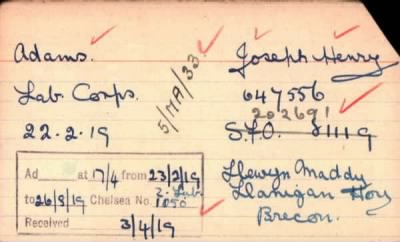 Adams. Joseph Henry
Lab Corps. 5/MA/33 647556
202691
22.2.19 S.F.O. 8111 9
Ad at 17/4 from 23/2/19
to 26/8/19 Chelsea No. 2. Lab 1050
Received 3/4/19
Llewyn Maddy
Llanigan Hory
Brecon.